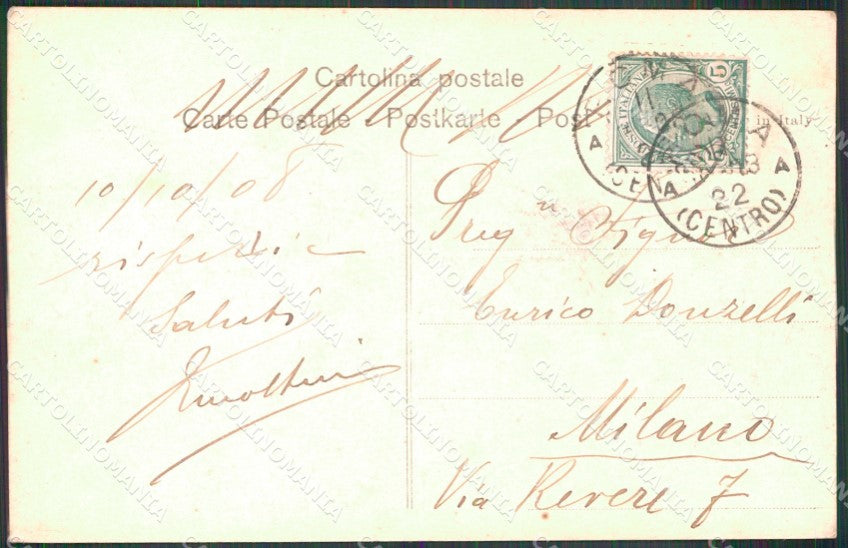 Cartolina postale
Carte Postale Postkarte Post in Italy
10/10/08
rispetti e
Saluti
Preg Sigr
Enrico Donzelli
Milano
Via Revere 7
CREMA
(CENTRO)
22
CARTOLINOMANIA